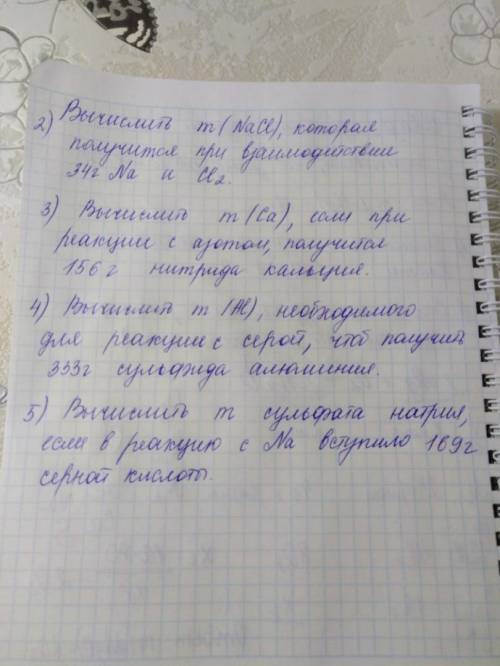 2) Вычислить m (NaCl), которая
получится при взаимодействии
34г Na и Cl2.
3) Вычислить m (Ca), если при
реакции с азотом, получится
156 г нитрида кальция.
4) Вычислить m (Al), необходимого
для реакции с серой, чтоб получить
333г сульфида алюминия.
5) Вычислить m сульфата натрия,
если в реакцию с Na вступило 169г
серной кислоты.